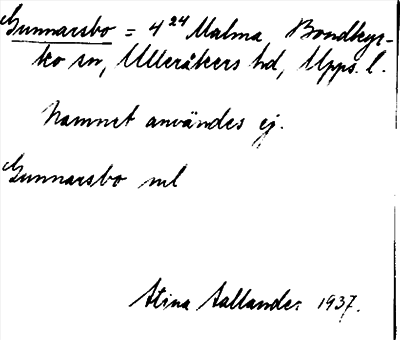 Gunnarsbo = 4²⁴ Malma, Bondkyr-
ko sn, Ulleråkers hd, Upps. l.
Namnet användes ej.
Gunnarsbo ml
Stina Sallander 1937.